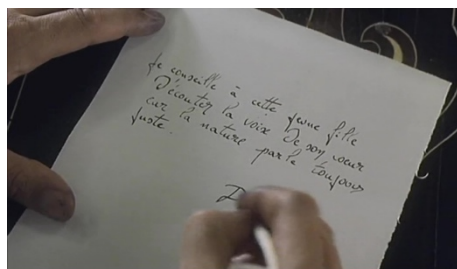 Je conseille à cette jeune fille
D'écouter la voix de son cœur
car la nature parle toujours
juste.
D